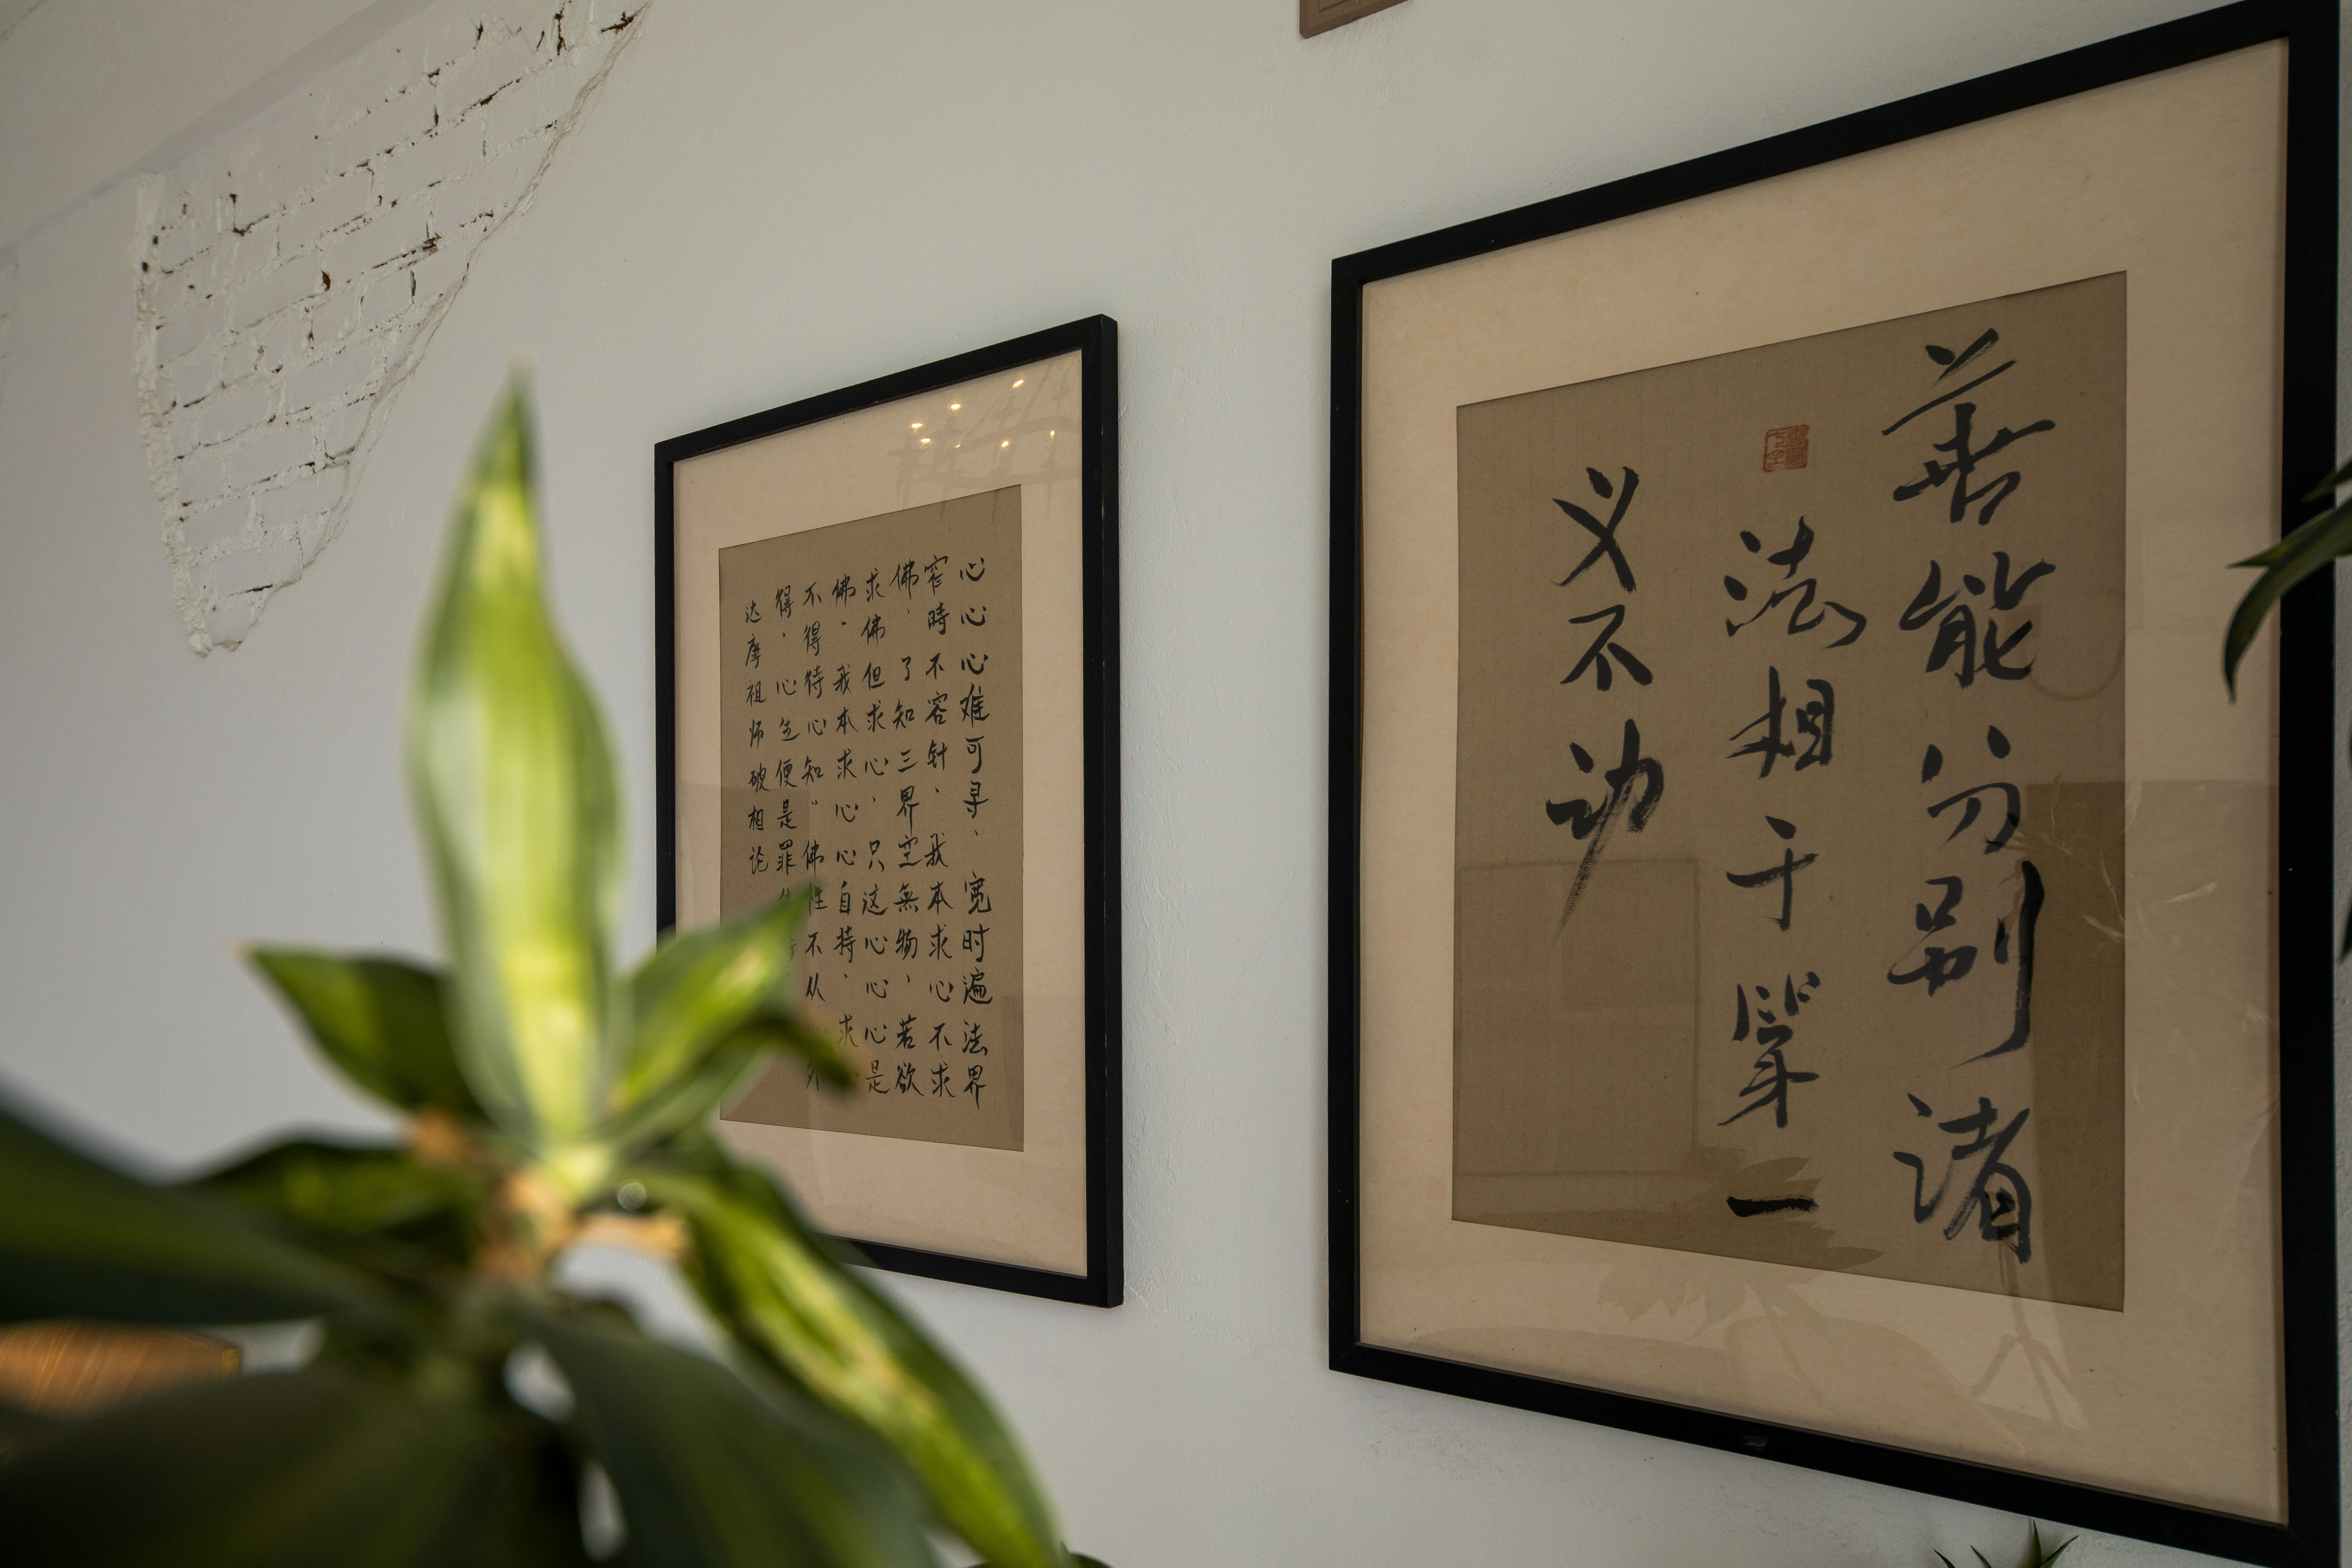 善能分别诸
法相于第一
义不动
心心心难可寻、宽时遍法界
窄時不容针、我本求心不求
佛、了知三界空無物、若欲
求佛但求心、只这心心心是
佛。我本求心心自持、求
不得待心知”佛性不从外
得、心生便是罪
达摩祖师破相论